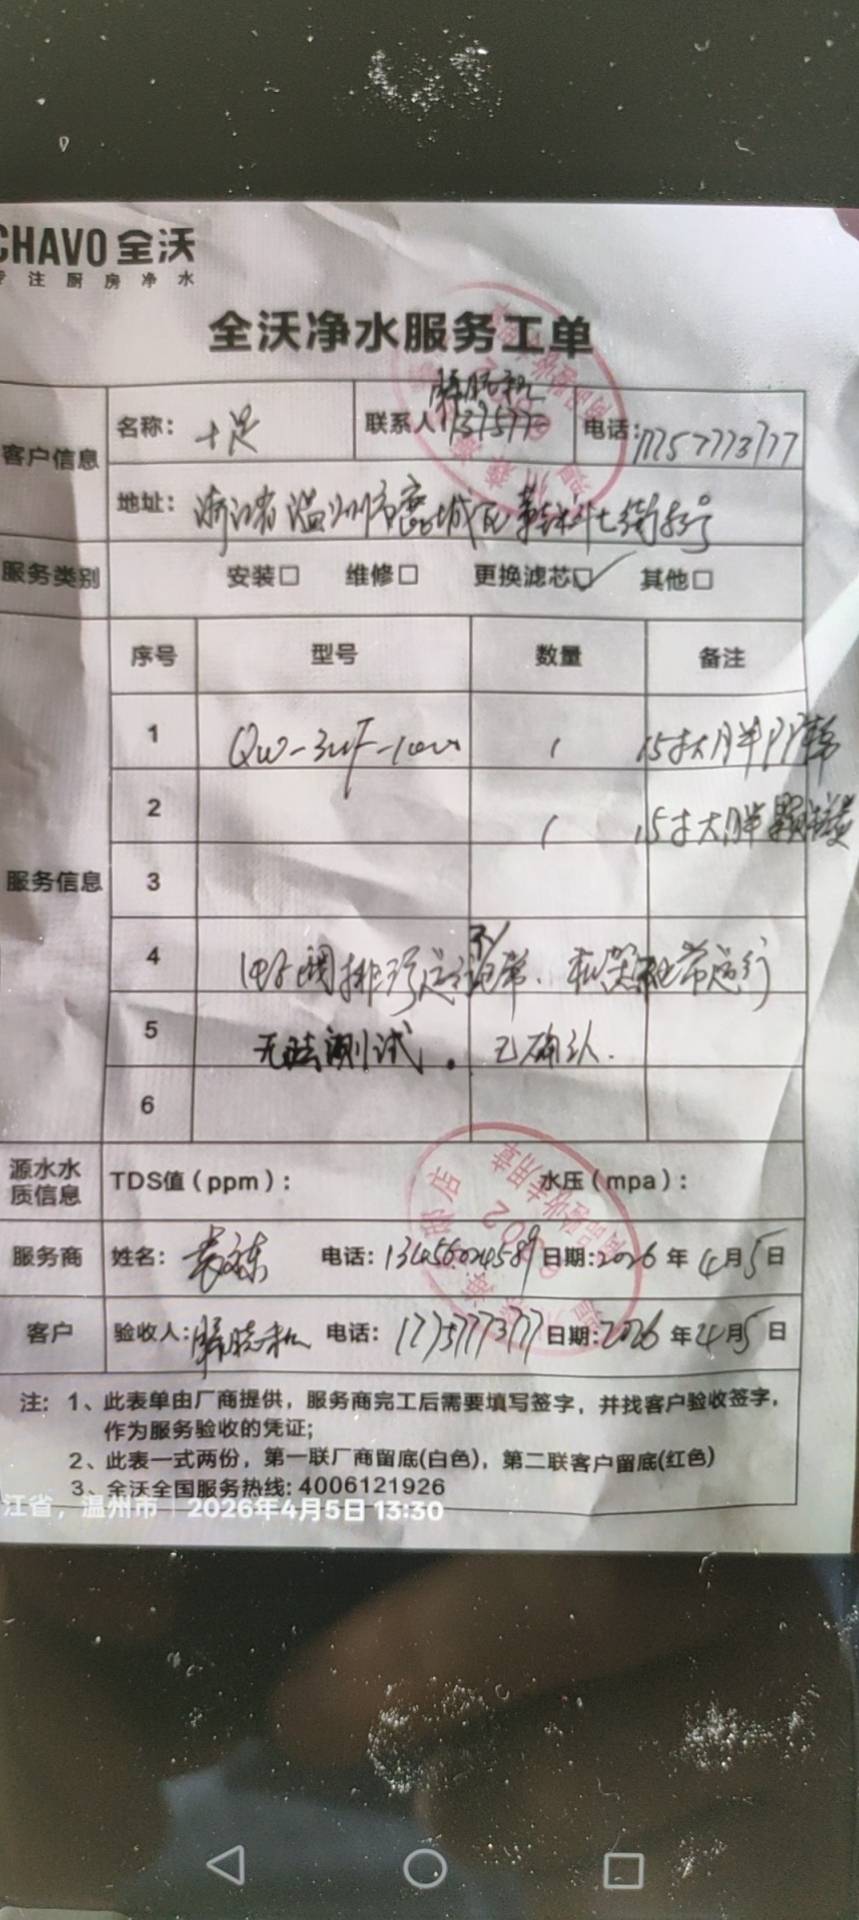 CHAVO 全沃
专注厨房净水
全沃净水服务工单
客户信息
名称: 十足
联系人
电话: 17757773777
地址: 浙江省温州市鹿城区
服务类别
安装□ 维修□ 更换滤芯☑ 其他□
服务信息
序号 型号 数量 备注
1 QW-3UF-1000 1 15寸大胖PP棉
2 1 15寸大胖颗粒炭
3
4 排污
5 无法测试. 已确认.
6
源水水质信息
TDS值(ppm): 水压(mpa):
服务商 姓名: 电话: 13456024589 日期: 2026年4月5日
客户 验收人: 电话: 17757773777 日期: 2026年4月5日
注: 1、此表单由厂商提供，服务商完工后需要填写签字，并找客户验收签字，
作为服务验收的凭证;
2、此表一式两份，第一联厂商留底(白色)，第二联客户留底(红色)
3、全沃全国服务热线: 4006121926
江省，温州市 | 2026年4月5日 13:30